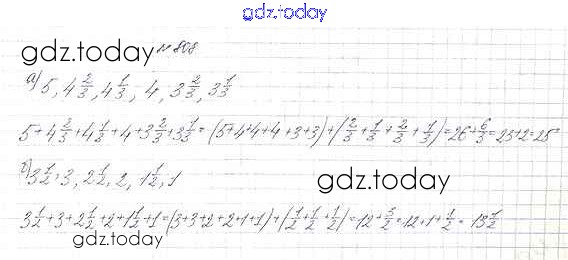 gdz.today
gdz.today №808
а) 5, 4 2/3, 4 1/3, 4, 3 2/3, 3 1/3
5+4 2/3+4 1/3+4+3 2/3+3 1/3=(5+4+4+4+3+3)+(2/3+1/3+2/3+1/3)=26+6/3=23+2=25
б) 3 1/2, 3, 2 1/2, 2, 1 1/2, 1
gdz.today
3 1/2+3+2 1/2+2+1 1/2+1=(3+3+2+2+1+1)+(1/2+1/2+1/2)=12+3/2=12+1+1/2=13 1/2
gdz.today